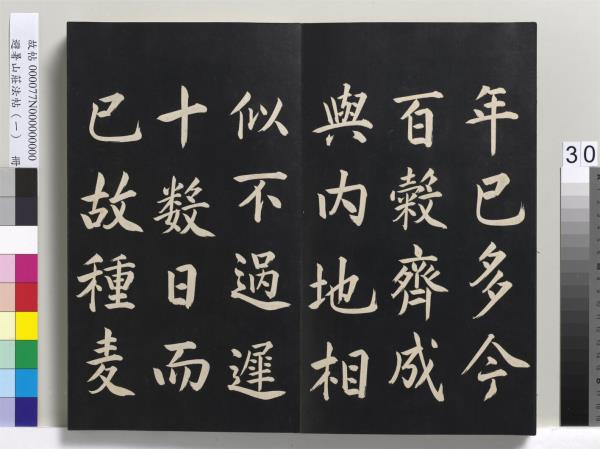 年已多今
百穀齊成
與內地相
似不過遲
十数日而
已故種麦
故帖 000077N000000000
避暑山莊法帖（一） 冊
30